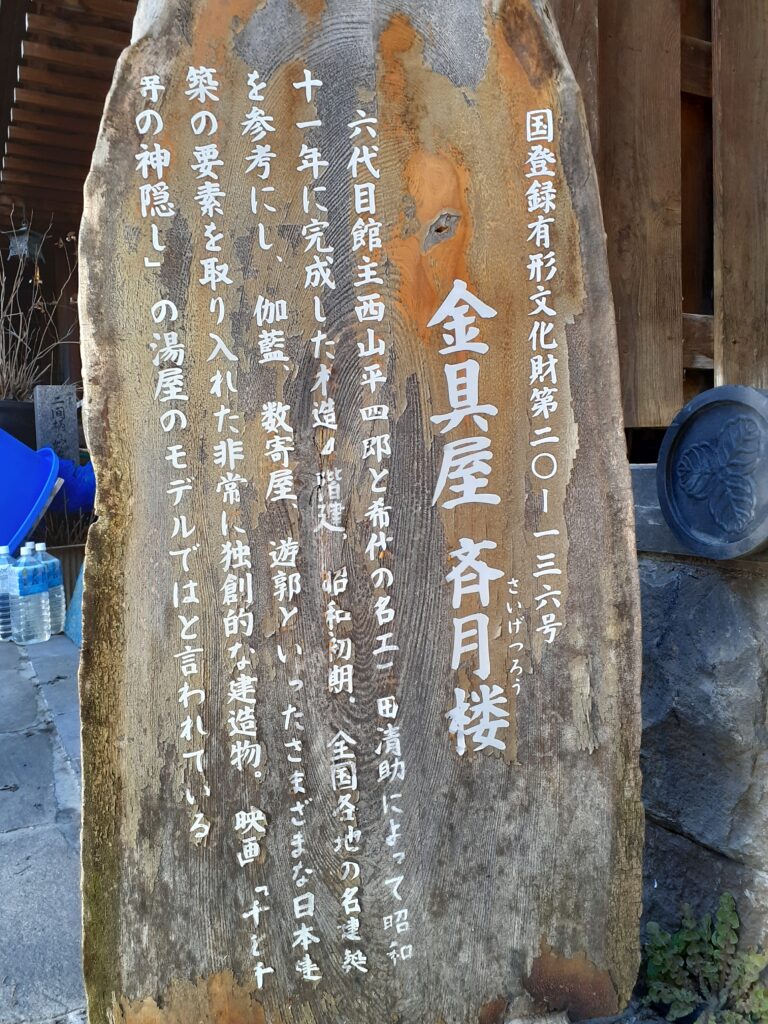 国登録有形文化財第二〇ー一三六号
金具屋 斉月楼
さいげつろう
六代目館主西山平四郎と希代の名工 田清助によって昭和
十一年に完成した木造四階建。昭和初期、全国各地の名建築
を参考にし、伽藍、数寄屋、遊郭といったさまざまな日本建
築の要素を取り入れた非常に独創的な建造物。映画「千と千
尋の神隠し」の湯屋のモデルではと言われている